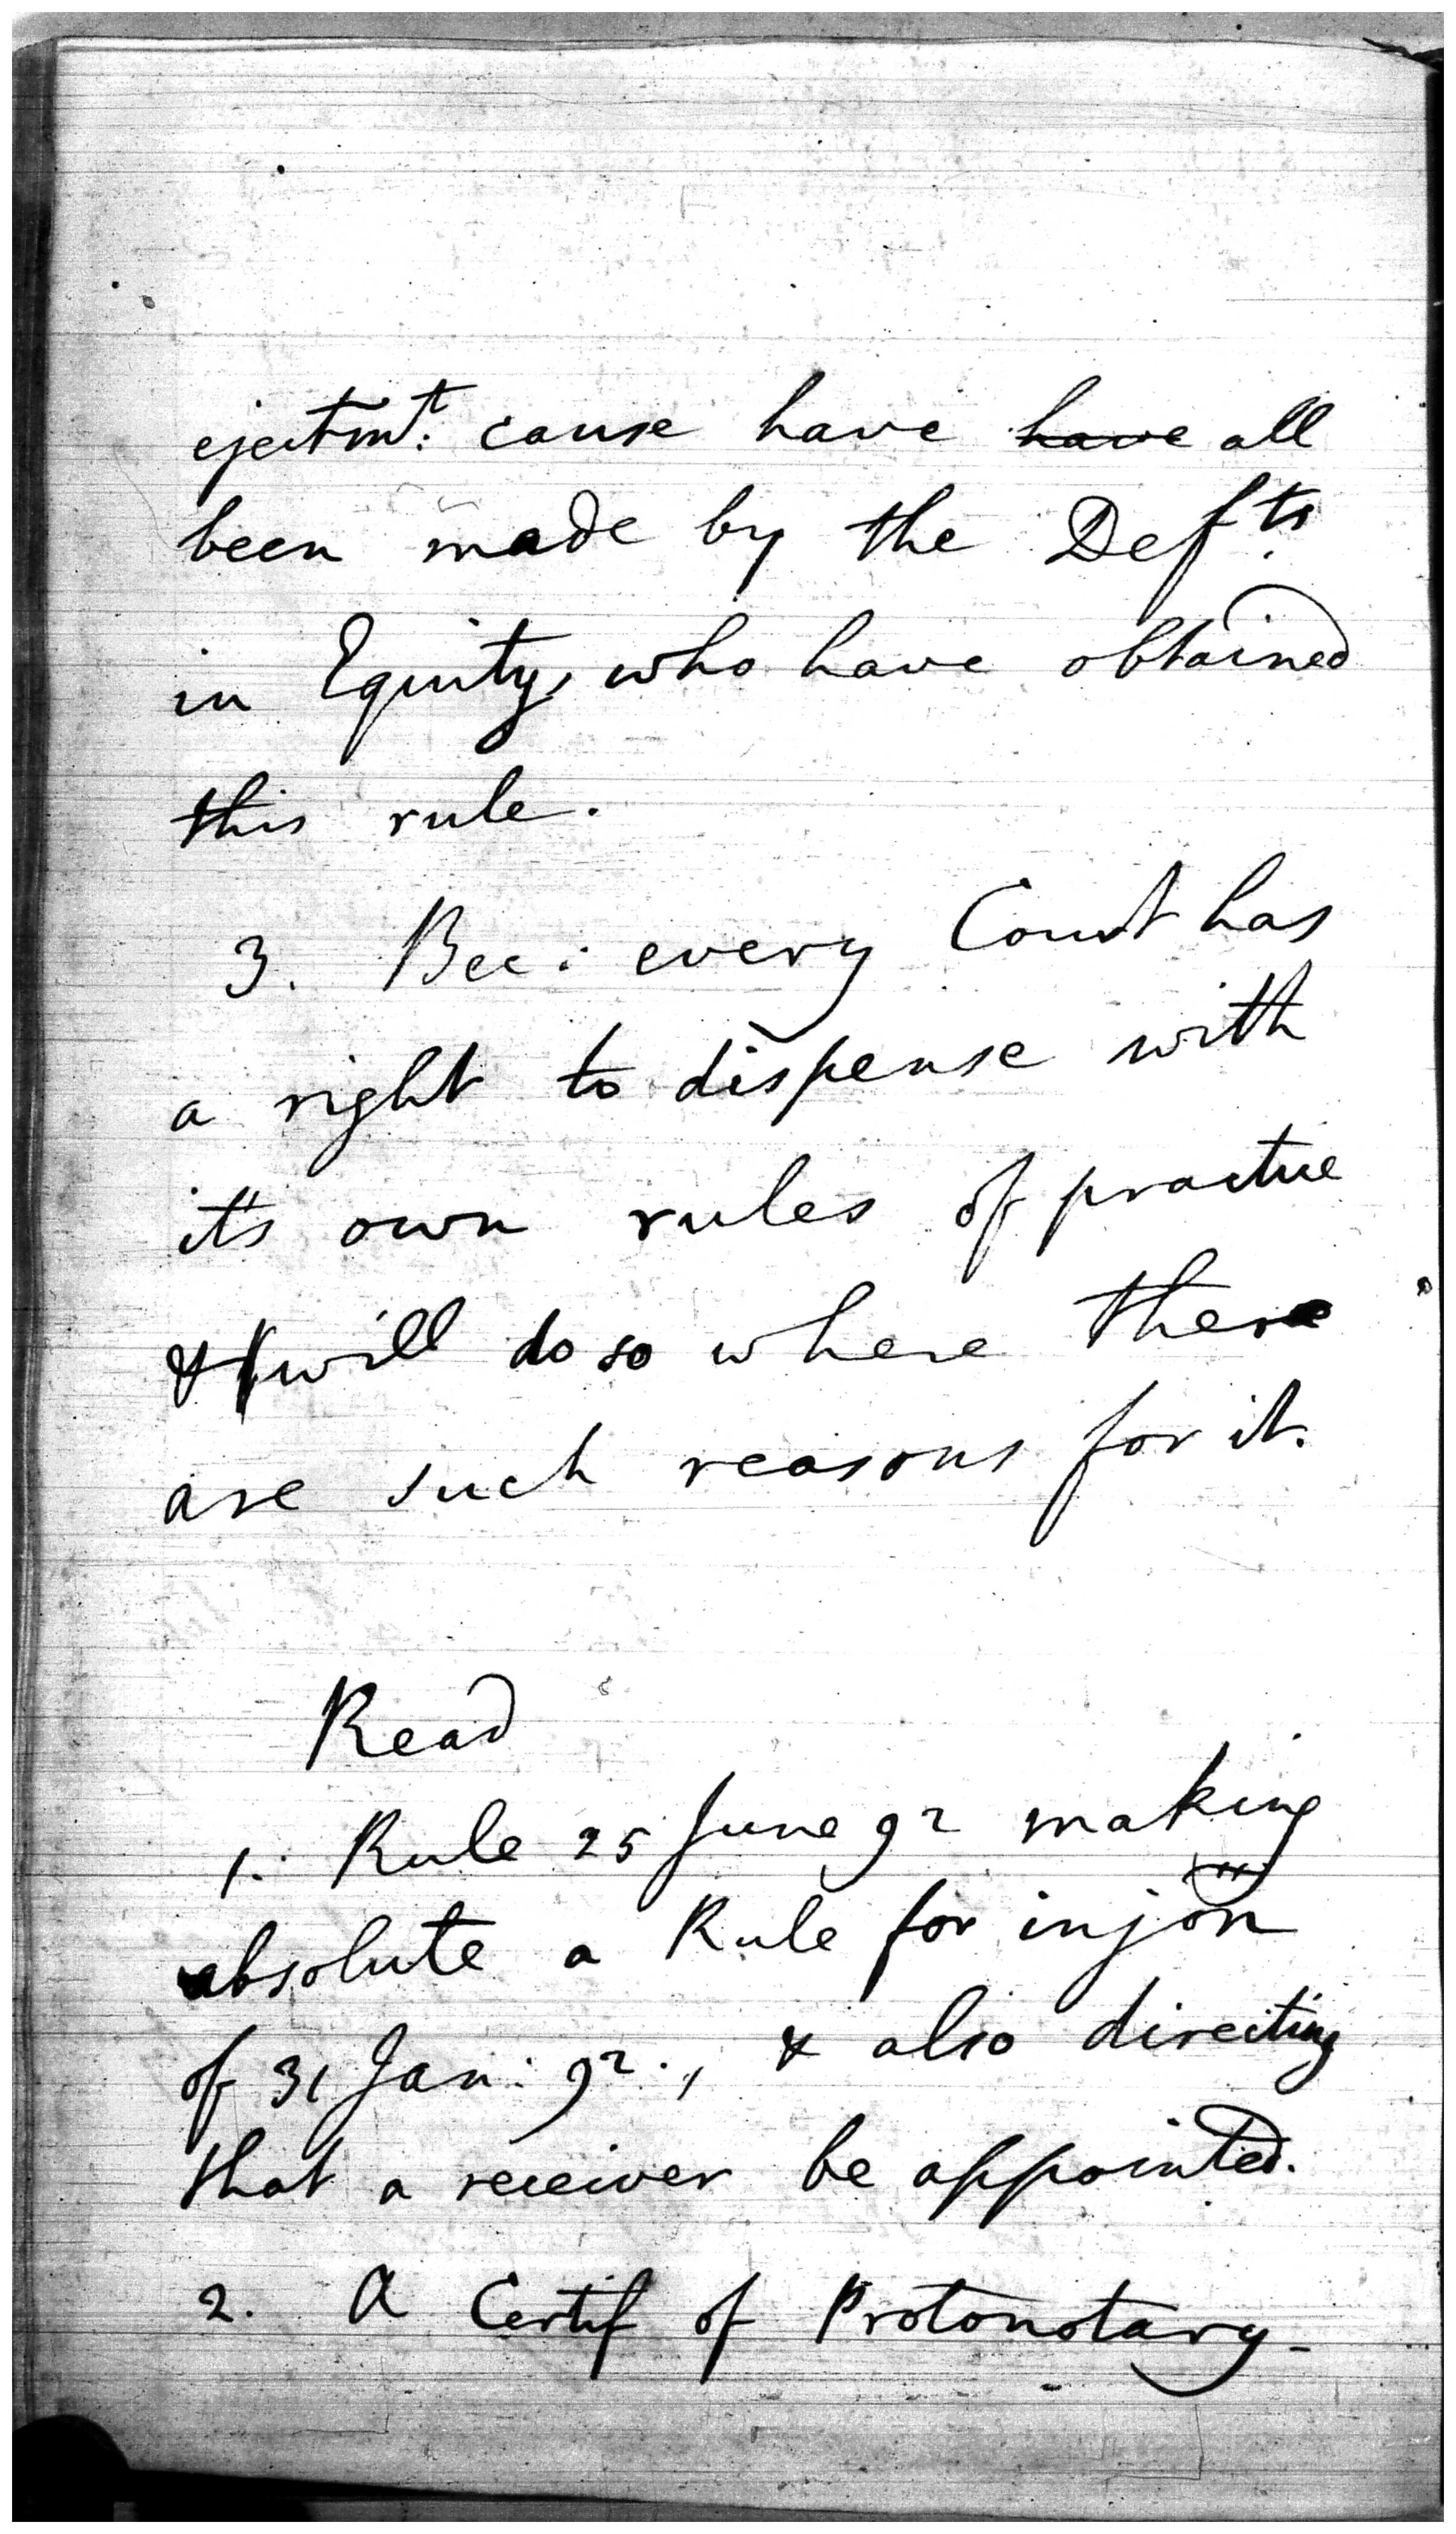 ejectmt: cause have have all
been made by the Defts.
in Equity, who have obtained
this rule.
3. Bec: every Court has
a right to dispense with
it's own rules of practice
& will do so where there
are such reasons for it.
Read
1. Rule 25 June 92 making
absolute a Rule for injõn
of 31 Jan: 92., & also directing
that a receiver be appointed.
2. A Certif of Protonotary-